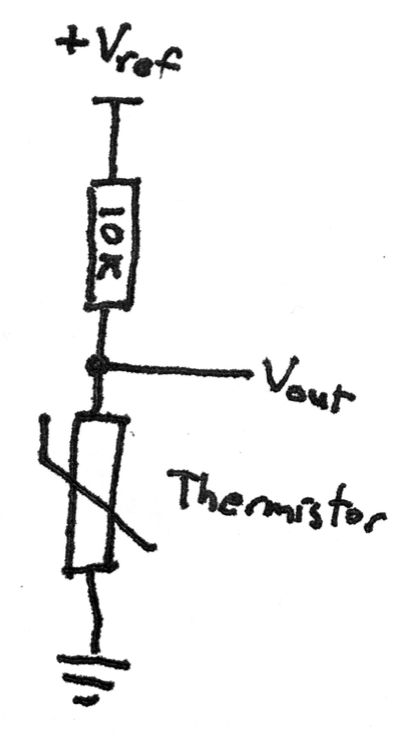 +Vref
10K
Vout
Thermistor